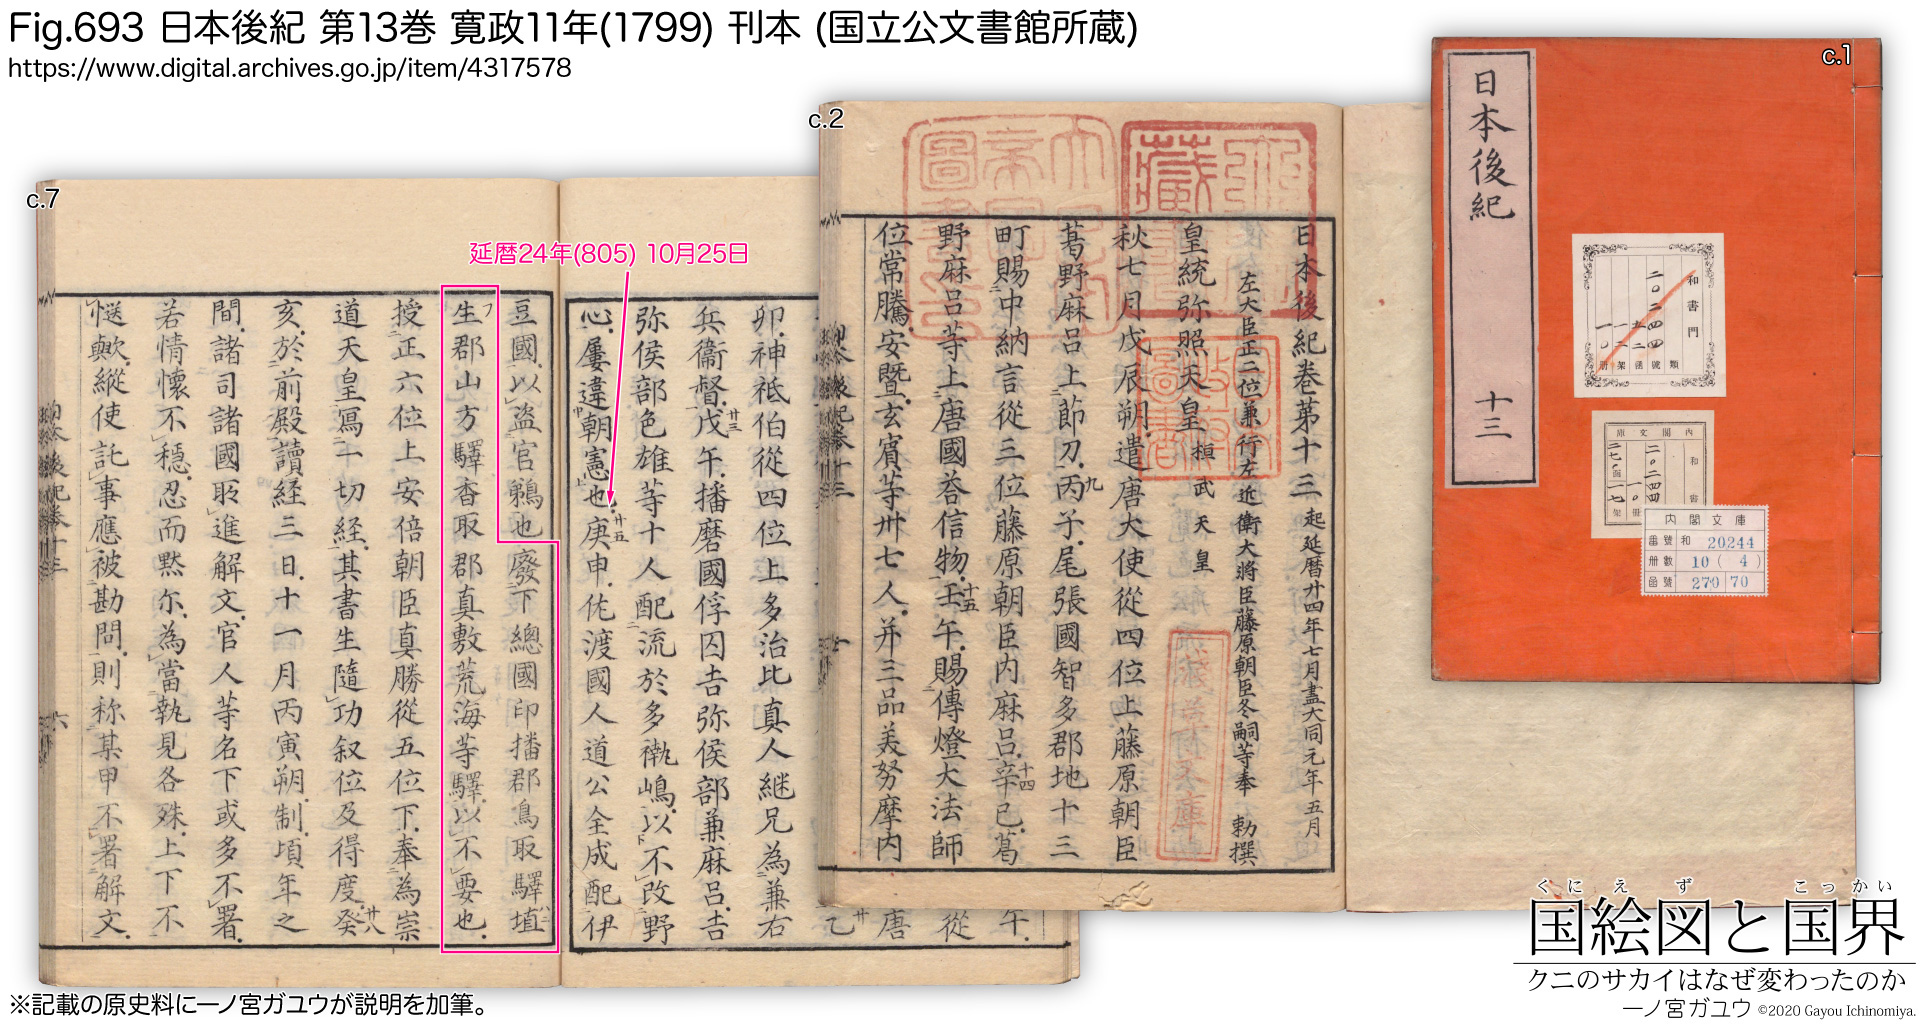 Fig.693 日本後紀 第13巻 寛政11年(1799) 刊本 (国立公文書館所蔵)
https://www.digital.archives.go.jp/item/4317578
c.1
日本後紀
十三
和書門
二〇二四四
類
號
函
架
冊
内閣文庫
和書
二〇二四四
一〇冊
内閣文庫
番號 和 20244
冊數 10(4)
函號 270 70
c.2
日本後紀巻第十三 起延暦廿四年七月盡大同元年五月
左大臣正二位兼行左近衛大將臣藤原朝臣冬嗣等奉 勅撰
皇統弥照天皇 桓武天皇
秋七月戊辰朔遣唐大使從四位上藤原朝臣
葛野麻呂上節刀丙子九尾張國智多郡地十三
町賜中納言從三位藤原朝臣内麻呂辛巳十四葛
野麻呂等上唐國答信物壬午十五賜傳燈大法師
位常騰安曁玄賓等卅七人并三品美努摩内
c.7
延暦24年(805) 10月25日
卯神祗伯從四位上多治比真人継兄為兼右
兵衞督戊午廿三播磨國俘囚吉弥侯部兼麻呂吉
弥侯部色雄等十人配流於多褹嶋以不改野
心屢違朝憲也庚申廿五佐渡國人道公全成配伊
豆國以盗官鵜也廢下總國印播郡鳥取驛埴
生郡山方驛香取郡真敷荒海等驛以不要也
授正六位上安倍朝臣真勝從五位下奉為崇
道天皇寫一切経其書生隨功叙位及得度癸廿八
亥於前殿讀経三日十一月丙寅朔制頃年之
間諸司諸國所進解文官人等名下或多不署
若情懷不穏忍而黙尓為當執見各殊上下不
愜歟縱使託事應被勘問則称某甲不署解文
くにえず こっかい
国絵図と国界
クニのサカイはなぜ変わったのか
一ノ宮ガユウ ©2020 Gayou Ichinomiya.
※記載の原史料に一ノ宮ガユウが説明を加筆。